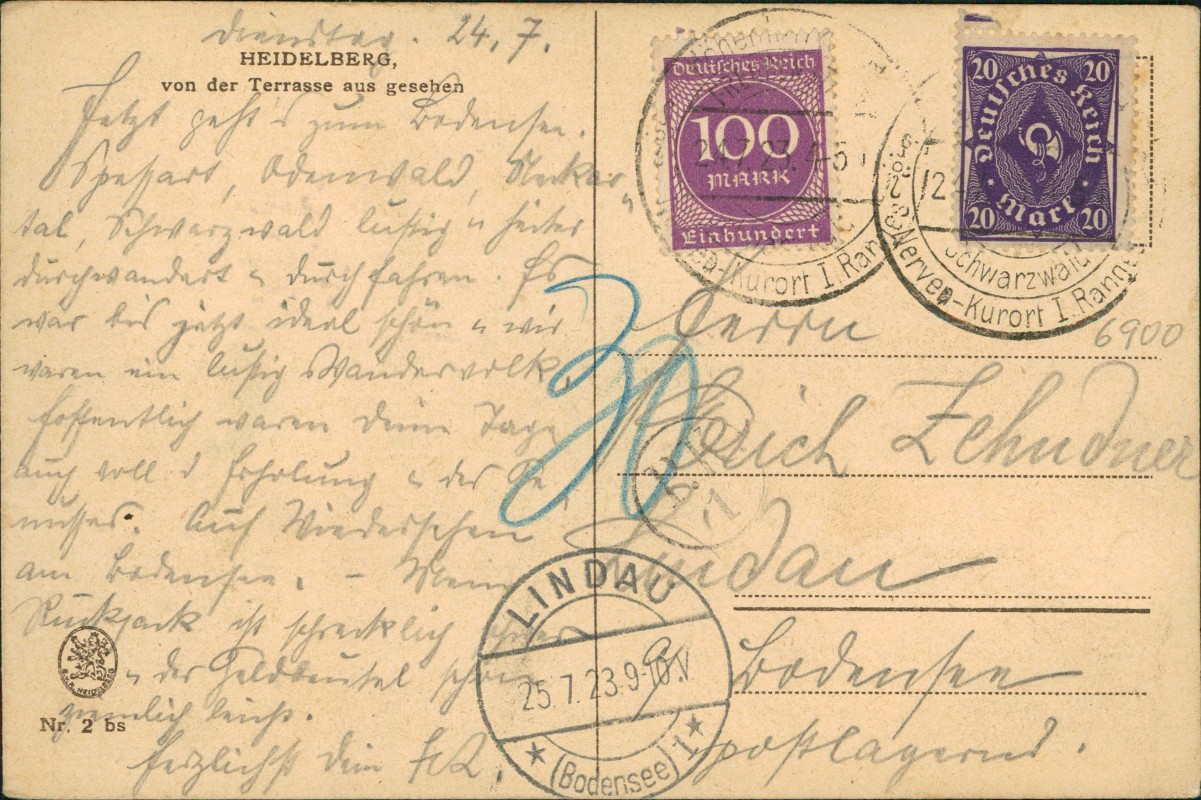 Dienstag. 24. 7.
HEIDELBERG,
von der Terrasse aus gesehen
Jetzt geht's zum Bodensee.
Spessart, Odenwald, Neckar-
tal, Schwarzwald lustig u heiter
durchwandert u durchfahren. Es
war bis jetzt ideal schön u wir
waren ein lustig Wandervolk.
Hoffentlich waren Deine Tage
auch voll d Erholung u des Ge
nusses. Auf Wiedersehen
am Bodensee. – Mein
Rucksack ist schrecklich schwer
u der Geldbeutel schon
ziemlich leicht.
Herzlichst Dein
Nr. 2 bs
Deutsches Reich
100
MARK
Einhundert
24.7.23. 4-5
Nerven-Kurort I. Ranges
20 20
Deutsches Reich
Mark
20 20
Schwarzwald
Nerven-Kurort I. Ranges
6900
30
Herrn
Erich Zehndner
Lindau
Bodensee
postlagernd.
LINDAU
25.7.23.9-10.V
(Bodensee) 1